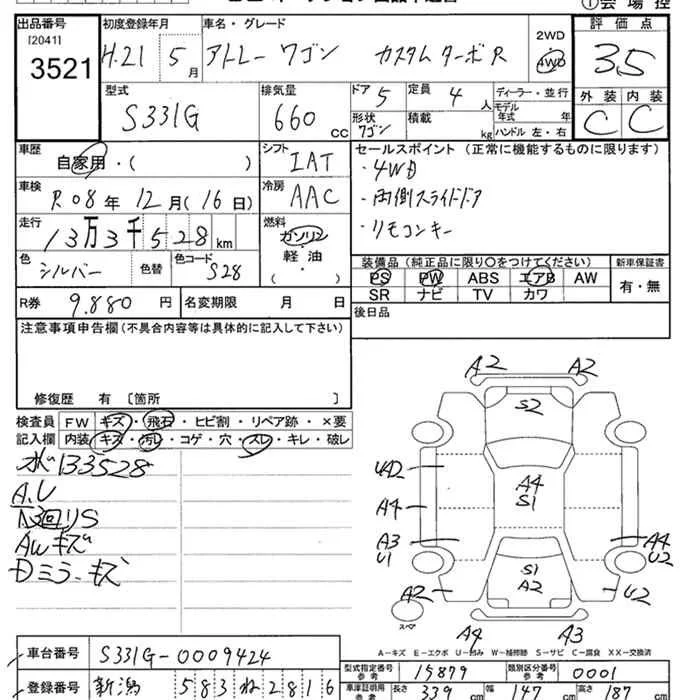 ①会場控
出品番号 初度登録年月 車名・グレード 評価点
[2041] H.21 5月 アトレー ワゴン カスタムターボR 2WD 4WD 3.5
3521
型式 排気量 ドア 5 定員 4人 ディーラー・並行 外装 内装
S331G 660cc 形状 ワゴン 積載 kg モデル年式 年式 ハンドル 左・右 C C
車歴 自家用・( ) シフト IAT セールスポイント (正常に機能するものに限ります)
車検 R08年 12月(16日) 冷房 AAC ・4WD
走行 13万3千528km 燃料 ガソリン 軽油 ( ) ・両側スライドドア
・リモコンキー
色 シルバー 色替 色コード S28 装備品 (純正品に限り○をつけてください) 新車保証書
PS PW ABS エアB AW 有・無
SR ナビ TV カワ
R券 9,880円 名変期限 月 日 後日品
注意事項申告欄(不具合内容等は具体的に記入して下さい)
修復歴 有 [箇所 ]
検査員 FW キズ・飛石・ヒビ割・リペア跡・×要
記入欄 内装 キズ・汚レ・コゲ・穴・スレ・キレ・破レ
133528
A.U
AWキズ
ミラーキズ
A2 A2
S2
A4
S1
A4
A3
U1
A4
U2
S1
A2
A2 U2
スペア
A4 A3
A-キズ E-エクボ U-凹み W-補修跡 S-サビ C-腐食 XX-交換済
車台番号 S331G-0009424
型式指定番号 15879 類別区分番号 0001
登録番号 新潟 583 ね 2816
車庫証明用参考 長さ 339cm 幅 147cm 高さ 187cm